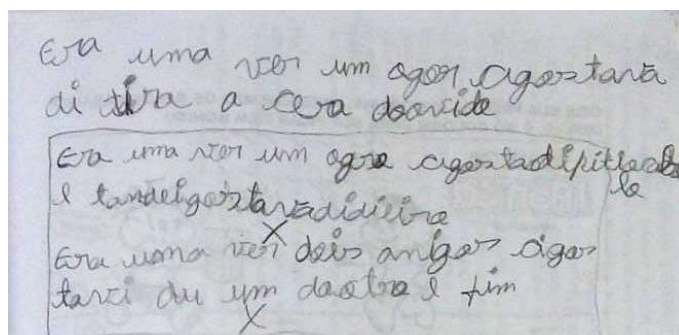 Era uma ver um ogor agostava
di tira a cera doovido
Era uma ver um ogro agostadipitla
e tandeigostavadidieira
Era uma ver dois amigos agos
tavi du um daotro e fim